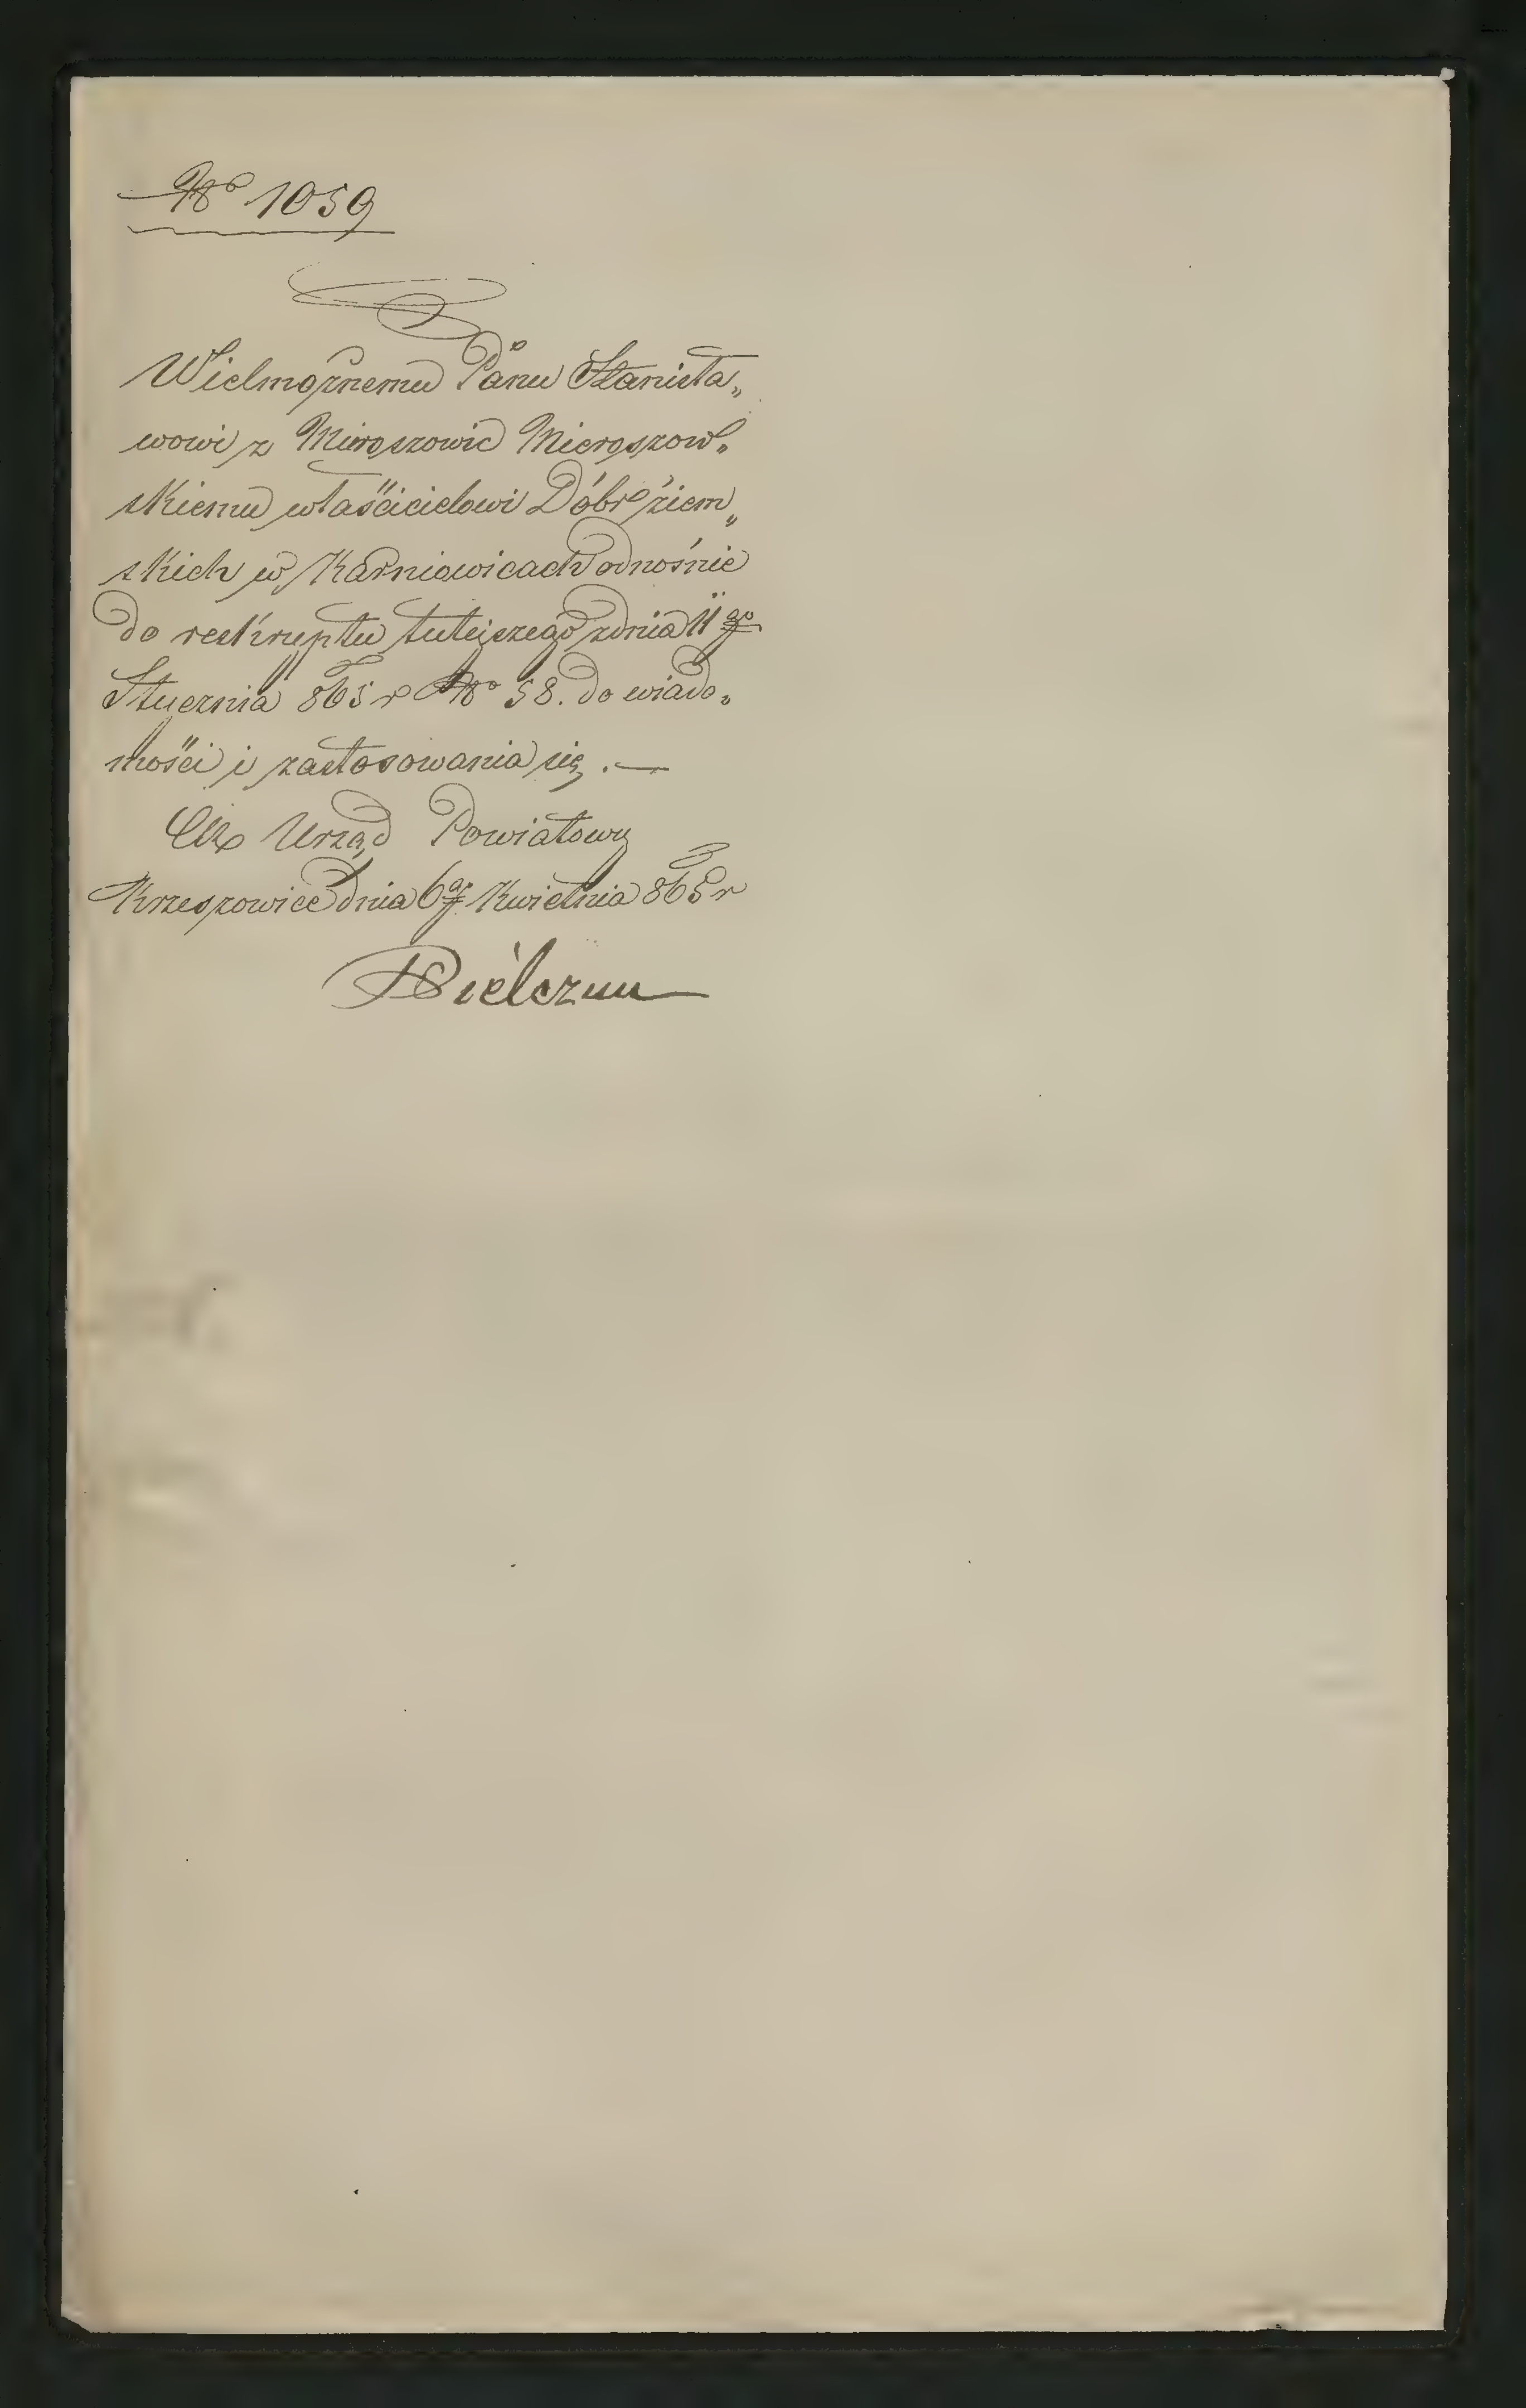 No 1059
Wielmożnemu Panu Stanisła„
wowi z Mieroszowic Mieroszow„
skiemu właścicielowi Dóbr ziem„
skich w Karniowicach odnośnie
do reskryptu tutejszego z dnia 11go
Stycznia 865 r No 58. do wiado„
mości i zastosowania się. —
CK Urząd Powiatowy
Krzeszowice dnia 6go Kwietnia 865 r